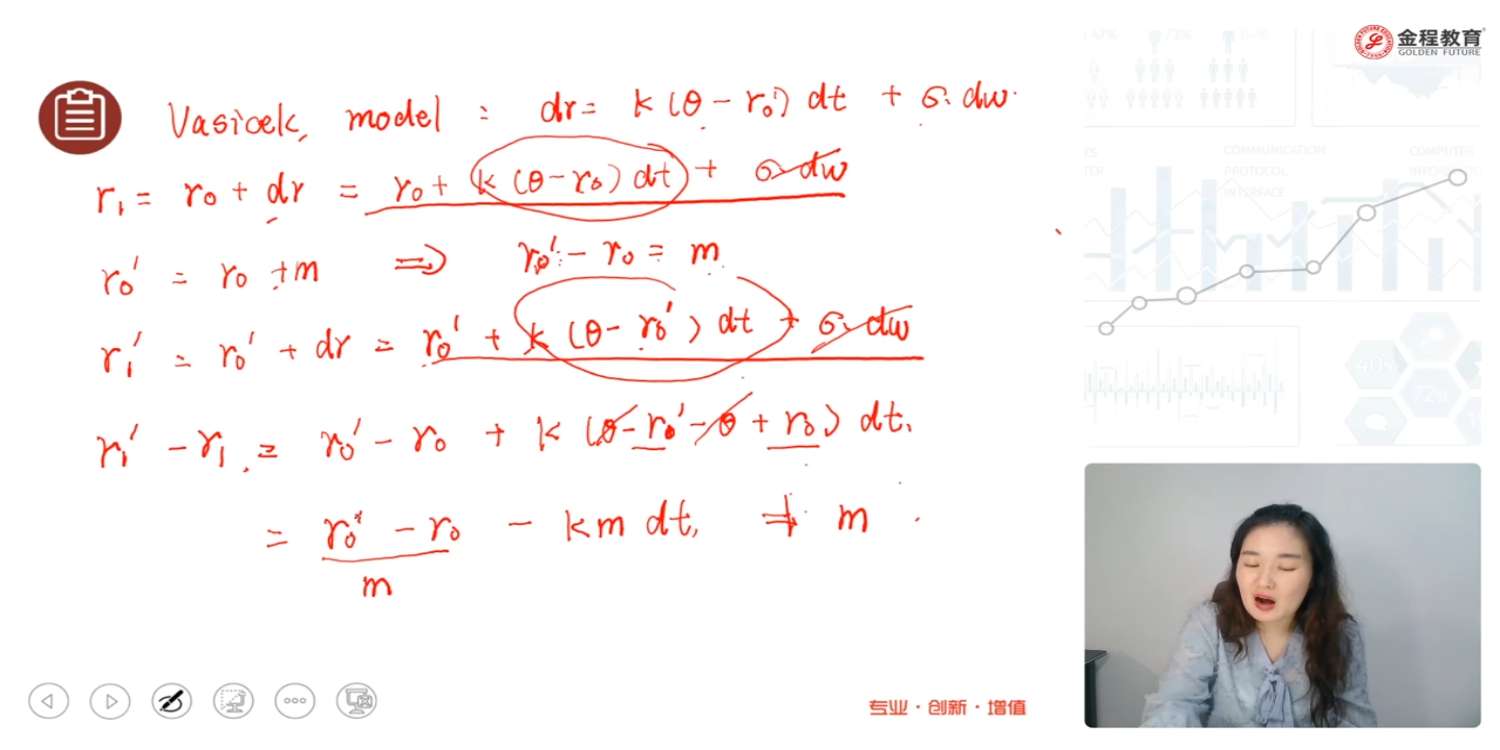 金程教育
GOLDEN FUTURE
Vasicek model : dr = k (θ - r₀) dt + σ. dw.
r₁ = r₀ + dr = r₀ + k (θ - r₀) dt + σ dw
r₀' = r₀ + m ⇒ r₀' - r₀ = m
r₁' = r₀' + dr = r₀' + k (θ - r₀') dt + σ. dw
r₁' - r₁ = r₀' - r₀ + k (θ - r₀' - θ + r₀) dt.
= r₀' - r₀ - km dt, ≠ m
m
COMMUNICATION
PROTOCOL
INTERFACE
专业·创新·增值